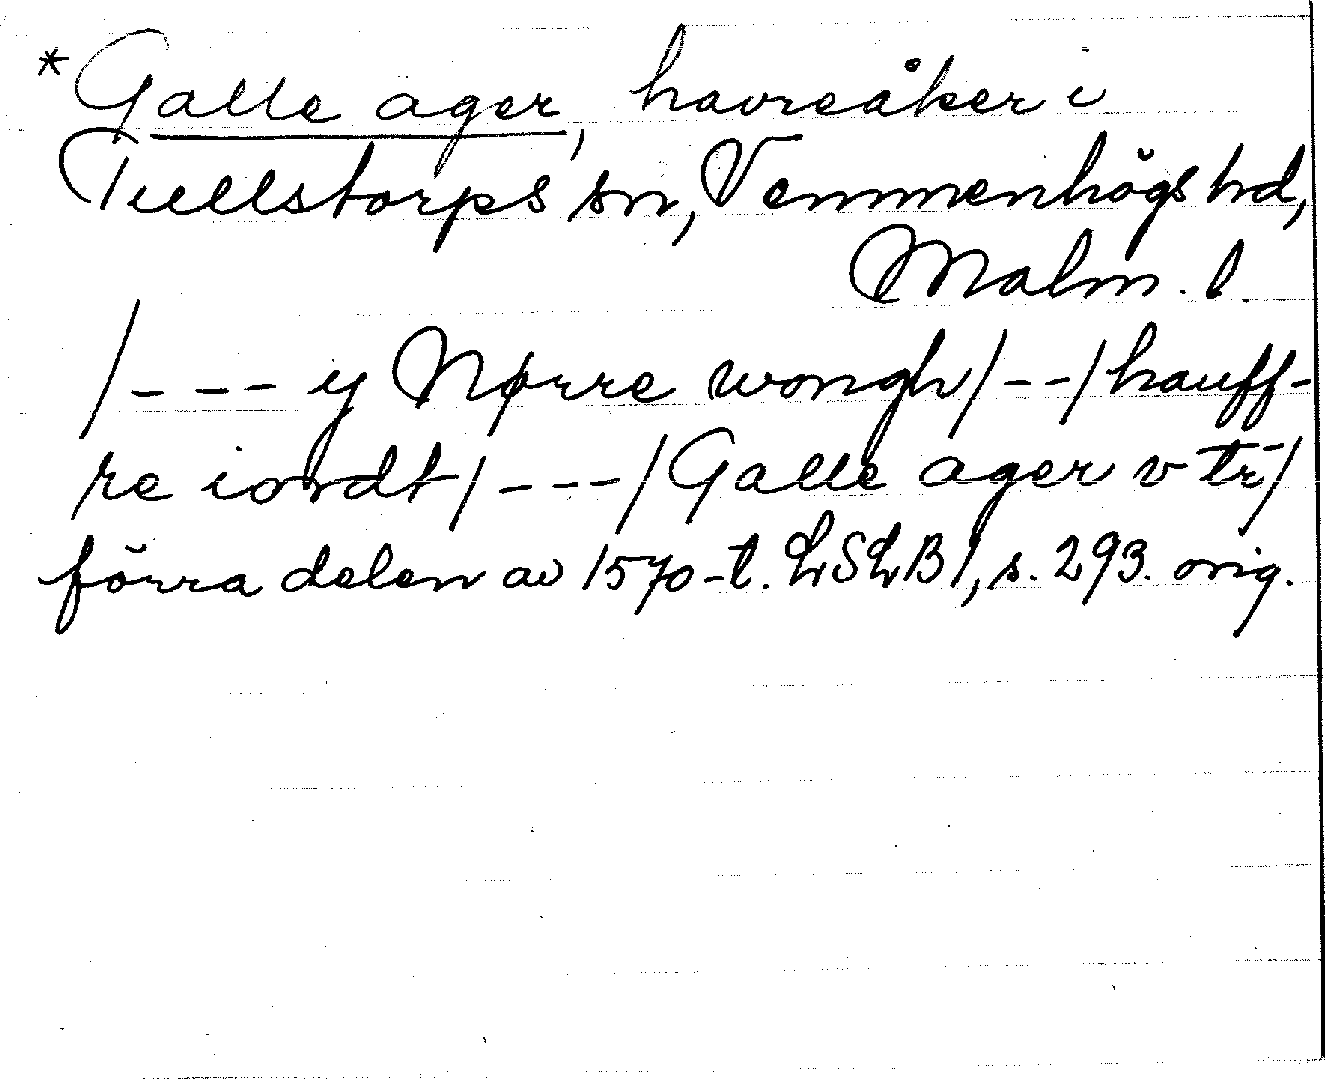 *Galle ager, havreåker i
Tullstorps sn, Vemmenhögs hd,
Malm. l.
/- - - y Nørre wongh/- -/hauff-
re iordt/- - -/Galle ager v tr̄/
förra delen av 1570-t. LSLB1, s. 293. orig.